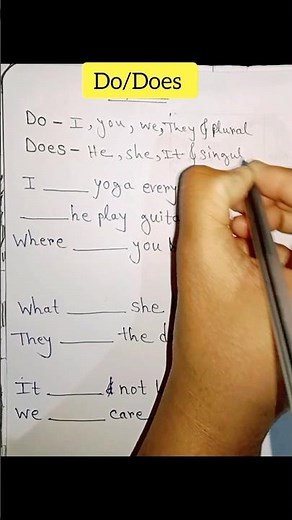 Do/Does
Do - I, you, we, They & plural
Does - He, she, It & singul
I ____ yoga every
____ he play guita
Where ____ you
What ____ she
They ____ the d
It ____ not
We ____ care